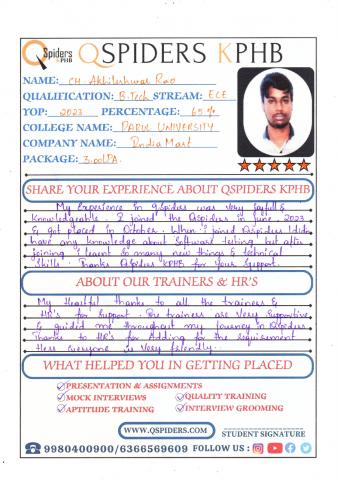 QSpiders
KPHB
QSPIDERS KPHB
NAME: CH. Akhileshwar Rao
QUALIFICATION: B.Tech STREAM: ECE
YOP: 2023 PERCENTAGE: 65%
COLLEGE NAME: PARUL UNIVERSITY
COMPANY NAME: India Mart
PACKAGE: 3.00LPA.
SHARE YOUR EXPERIENCE ABOUT QSPIDERS KPHB
My Experience in QSpiders was very Joyfull &
knowledgable. I joined the QSpiders in june, 2023
& got placed in October. When I joined QSpiders I didn't
have any knowledge about Software testing but after
joining I learnt so many new things & technical
Skills. Thanks QSpiders KPHB for your Support.
ABOUT OUR TRAINERS & HR'S
My Heartful thanks to all the trainers &
HR's for Support. The trainers are very Supportive
& guided me throughout my journey in QSpiders
Thanks to HR's for Adding for the requirement
Here everyone is very friendly.
WHAT HELPED YOU IN GETTING PLACED
PRESENTATION & ASSIGNMENTS
MOCK INTERVIEWS QUALITY TRAINING
APTITUDE TRAINING INTERVIEW GROOMING
WWW.QSPIDERS.COM STUDENT SIGNATURE
9980400900/6366569609 FOLLOW US: